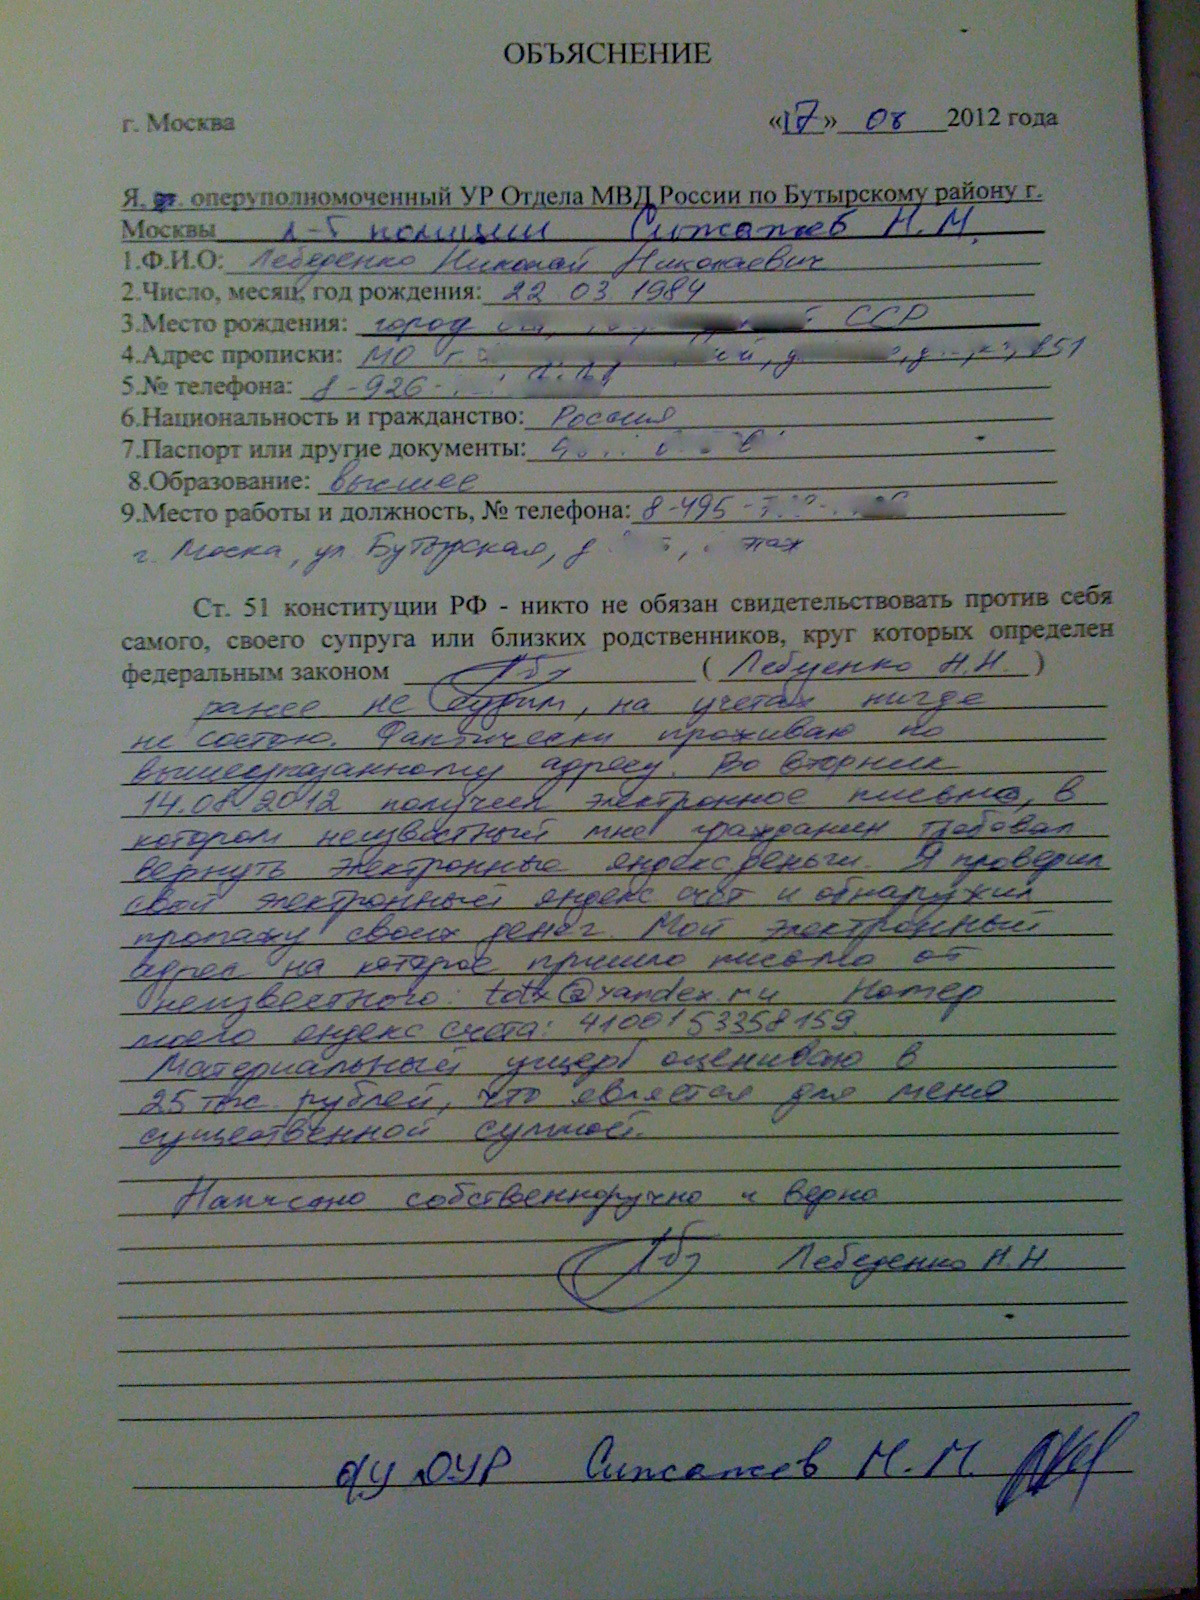 ОБЪЯСНЕНИЕ
г. Москва «17» 08 2012 года
Я, оперуполномоченный УР Отдела МВД России по Бутырскому району г.
Москвы л-т полиции М.М.
1.Ф.И.О: Лебеденко Николай Николаевич
2.Число, месяц, год рождения: 22 03 1984
3.Место рождения: город ССР
4.Адрес прописки: МО г.
5.№ телефона: 8-926-
6.Национальность и гражданство: Россия
7.Паспорт или другие документы:
8.Образование: высшее
9.Место работы и должность, № телефона: 8-495-
г. Моска, ул. Бутырская, д этаж
Ст. 51 конституции РФ - никто не обязан свидетельствовать против себя
самого, своего супруга или близких родственников, круг которых определен
федеральным законом ( Лебеденко Н.Н. )
ранее не судим, на учетах нигде
не состою. Фактически проживаю по
вышеуказанному адресу. Во вторник
14.08 2012 получил электронное письмо, в
котором неизвестный мне гражданин требовал
вернуть электронные яндекс деньги. Я проверил
свой электронный яндекс счет и обнаружил
пропажу своих денег. Мой электронный
адрес на которое пришло письмо от
неизвестного: totx@yandex.ru Номер
моего яндекс счета: 4100153358159
Материальный ущерб оцениваю в
25 тыс. рублей, что является для меня
существенной суммой.
Написано собственноручно и верно
Лебеденко Н.Н
о/у ОУР М.М.